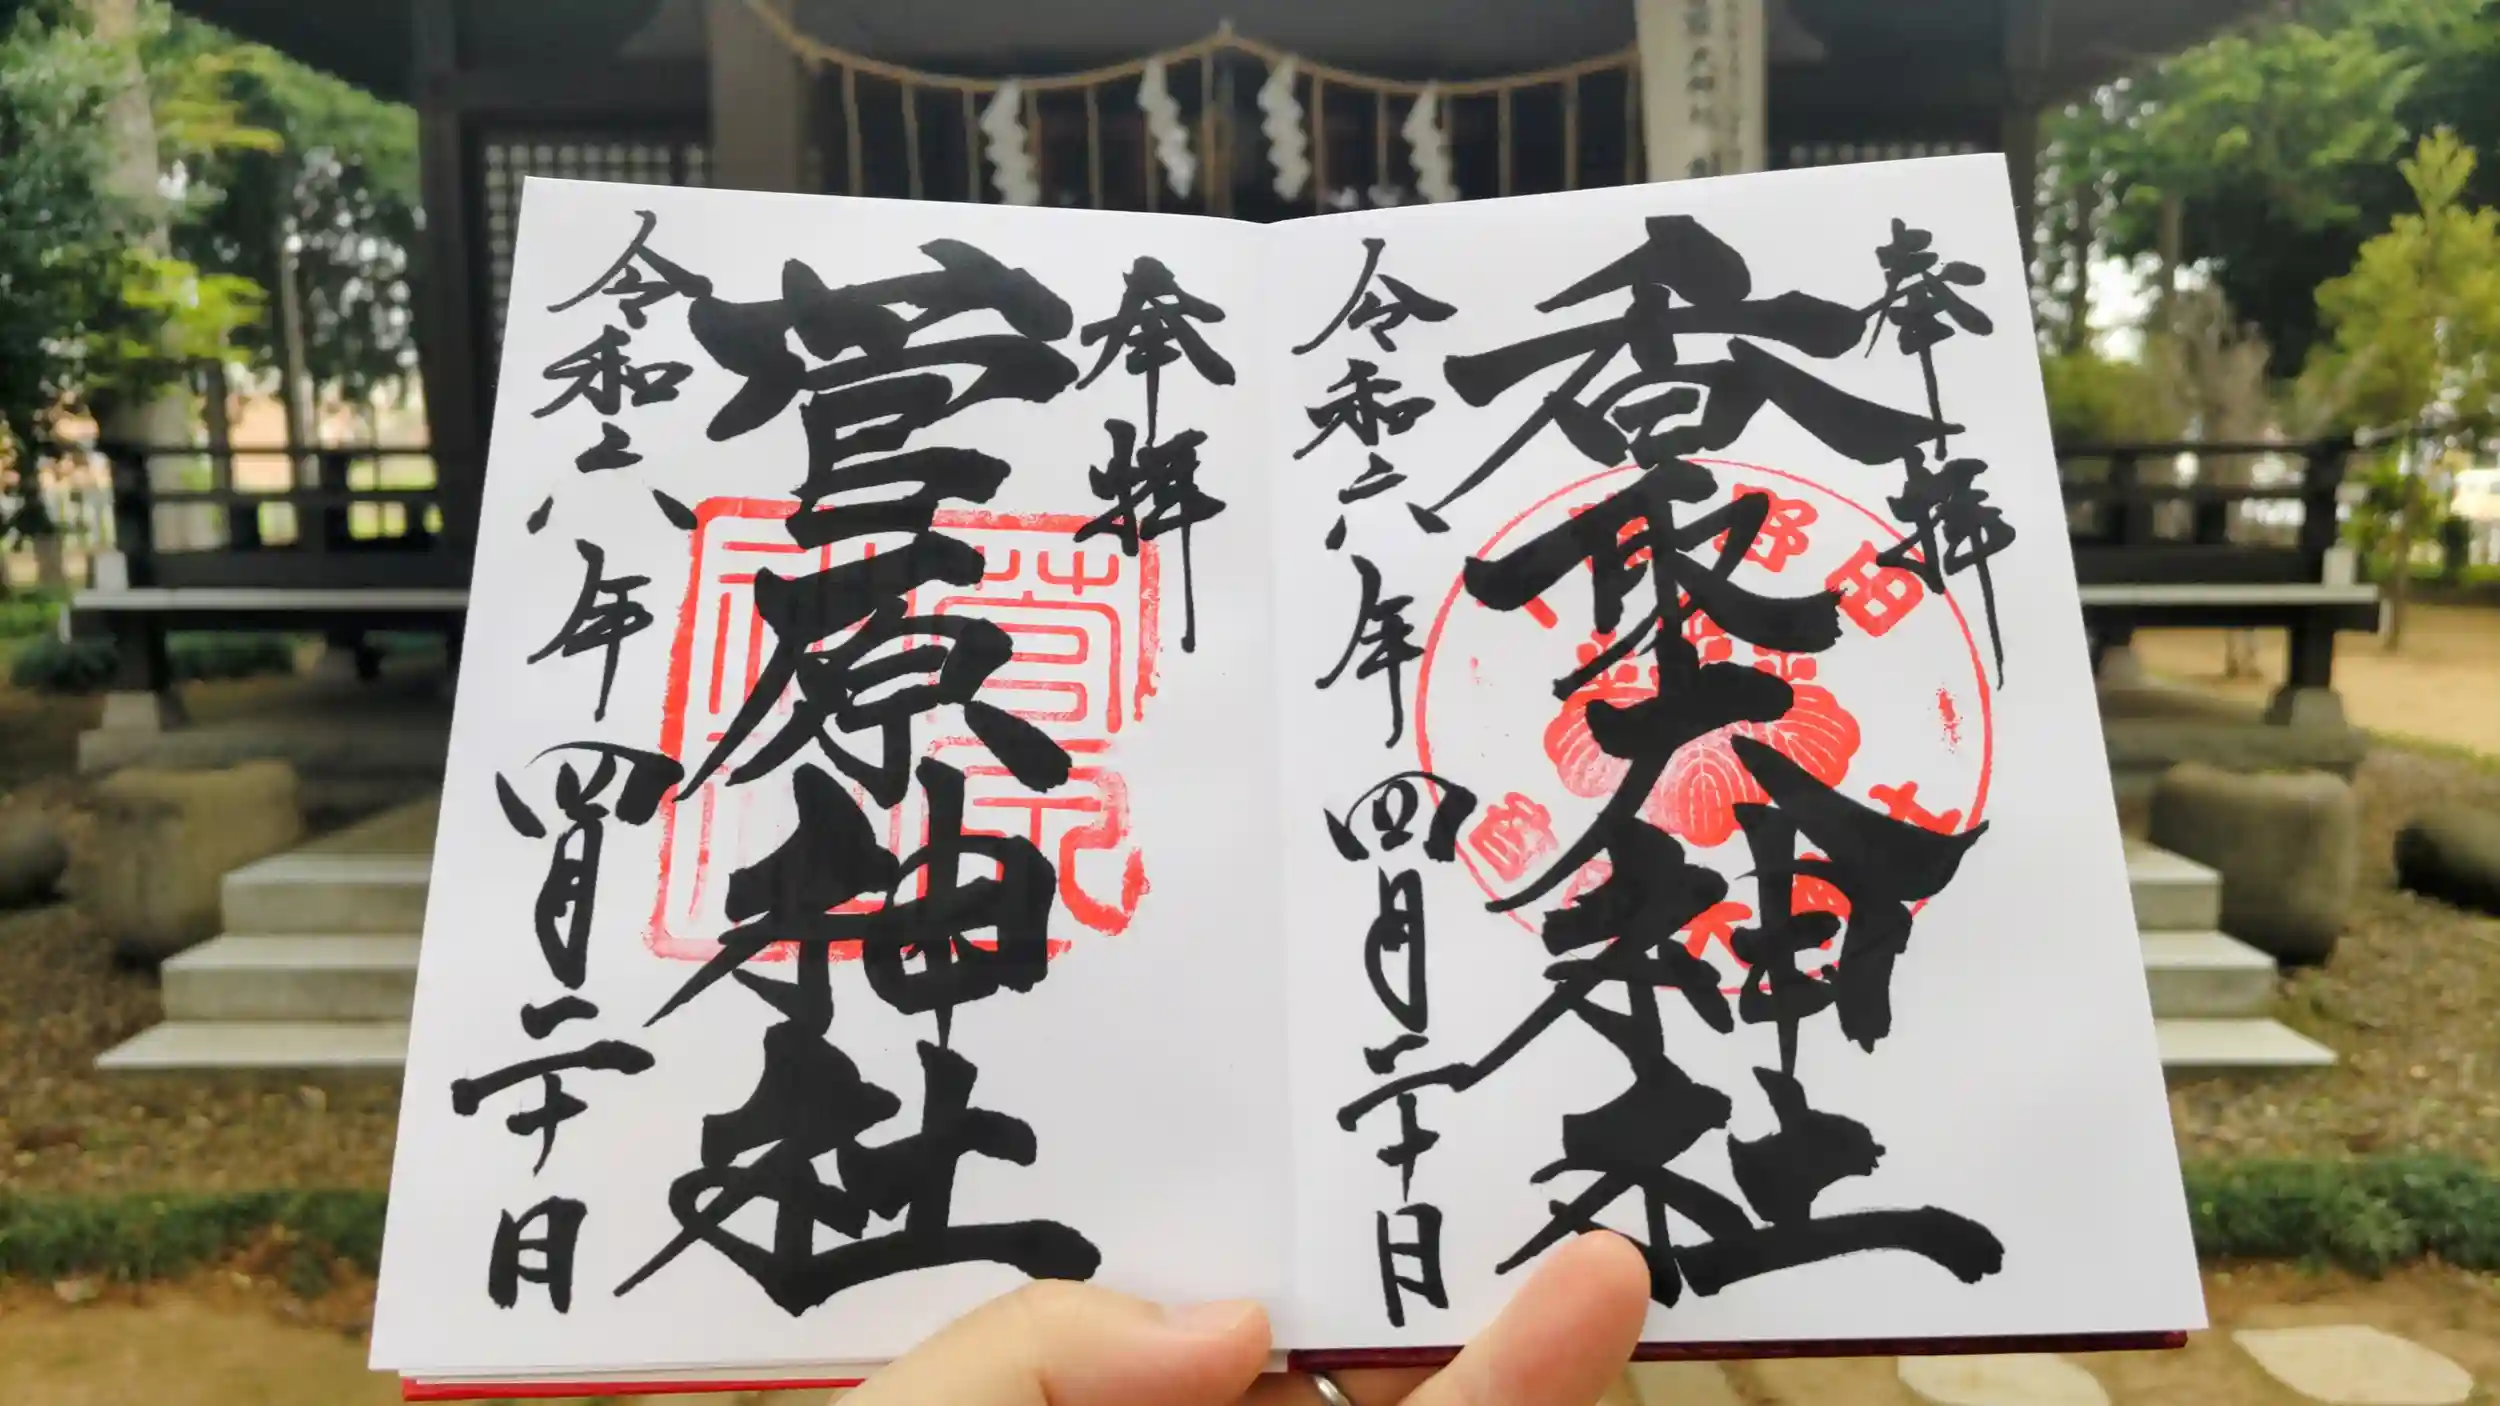 奉拝
香取大神社
令和六年四月二十日
奉拝
菅原神社
令和六年四月二十日